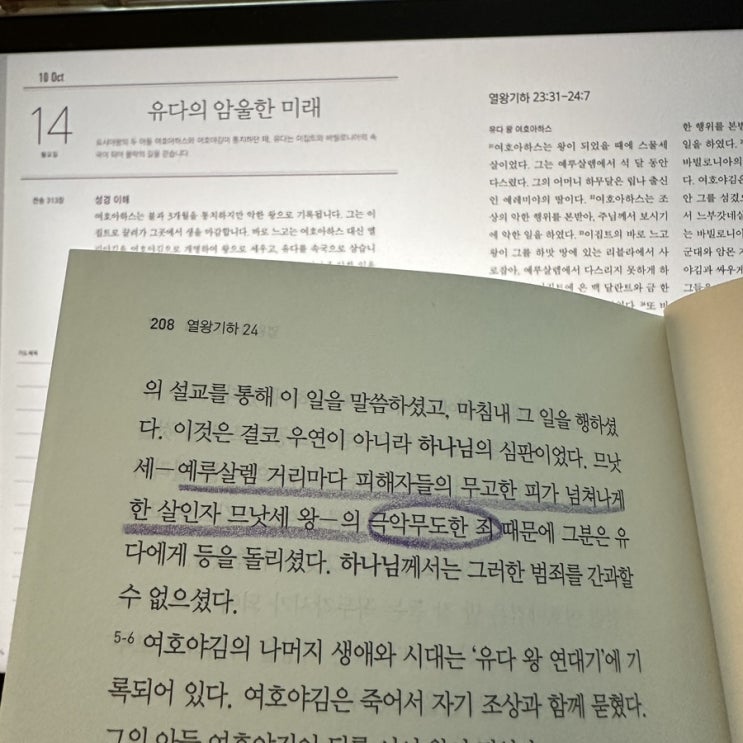 10 Oct
14
월요일
유다의 암울한 미래
요시야왕의 두 아들 여호아하스와 여호야김이 통치하던 때, 유다는 이집트와 바빌로니아의 속
국이 되어 몰락의 길을 걷습니다
찬송 313장
성경 이해
여호아하스는 불과 3개월을 통치하지만 악한 왕으로 기록됩니다. 그는 이
집트로 끌려가 그곳에서 생을 마감합니다. 바로 느고는 여호아하스 대신 엘
리야김을 여호야김으로 개명하여 왕으로 세우고, 유다를 속국으로 삼습니
기도제목
열왕기하 23:31-24:7
유다 왕 여호아하스
31여호아하스는 왕이 되었을 때에 스물세
살이었다. 그는 예루살렘에서 석 달 동안
다스렸다. 그의 어머니 하무달은 립나 출신
인 예레미야의 딸이다. 32여호아하스는 조
상의 악한 행위를 본받아, 주님께서 보시기
에 악한 일을 하였다. 33이집트의 바로 느고
왕이 그를 하맛 땅에 있는 리블라에서 사
로잡아, 예루살렘에서 다스리지 못하게 하
은 백 달란트와 금 한
34또 바
한 행위를 본받
일을 하였다.
바빌로니아의
다. 여호야김은
안 그를 섬겼으
서 느부갓네살
는 바빌로니아
군대와 암몬
야김과 싸우게
그들을
208 열왕기하 24
의 설교를 통해 이 일을 말씀하셨고, 마침내 그 일을 행하셨
다. 이것은 결코 우연이 아니라 하나님의 심판이었다. 므낫
세—예루살렘 거리마다 피해자들의 무고한 피가 넘쳐나게
한 살인자 므낫세 왕—의 극악무도한 죄 때문에 그분은 유
다에게 등을 돌리셨다. 하나님께서는 그러한 범죄를 간과할
수 없으셨다.
5-6 여호야김의 나머지 생애와 시대는 '유다 왕 연대기'에 기
록되어 있다. 여호야김은 죽어서 자기 조상과 함께 묻혔다.
그의 아들 여호야긴이